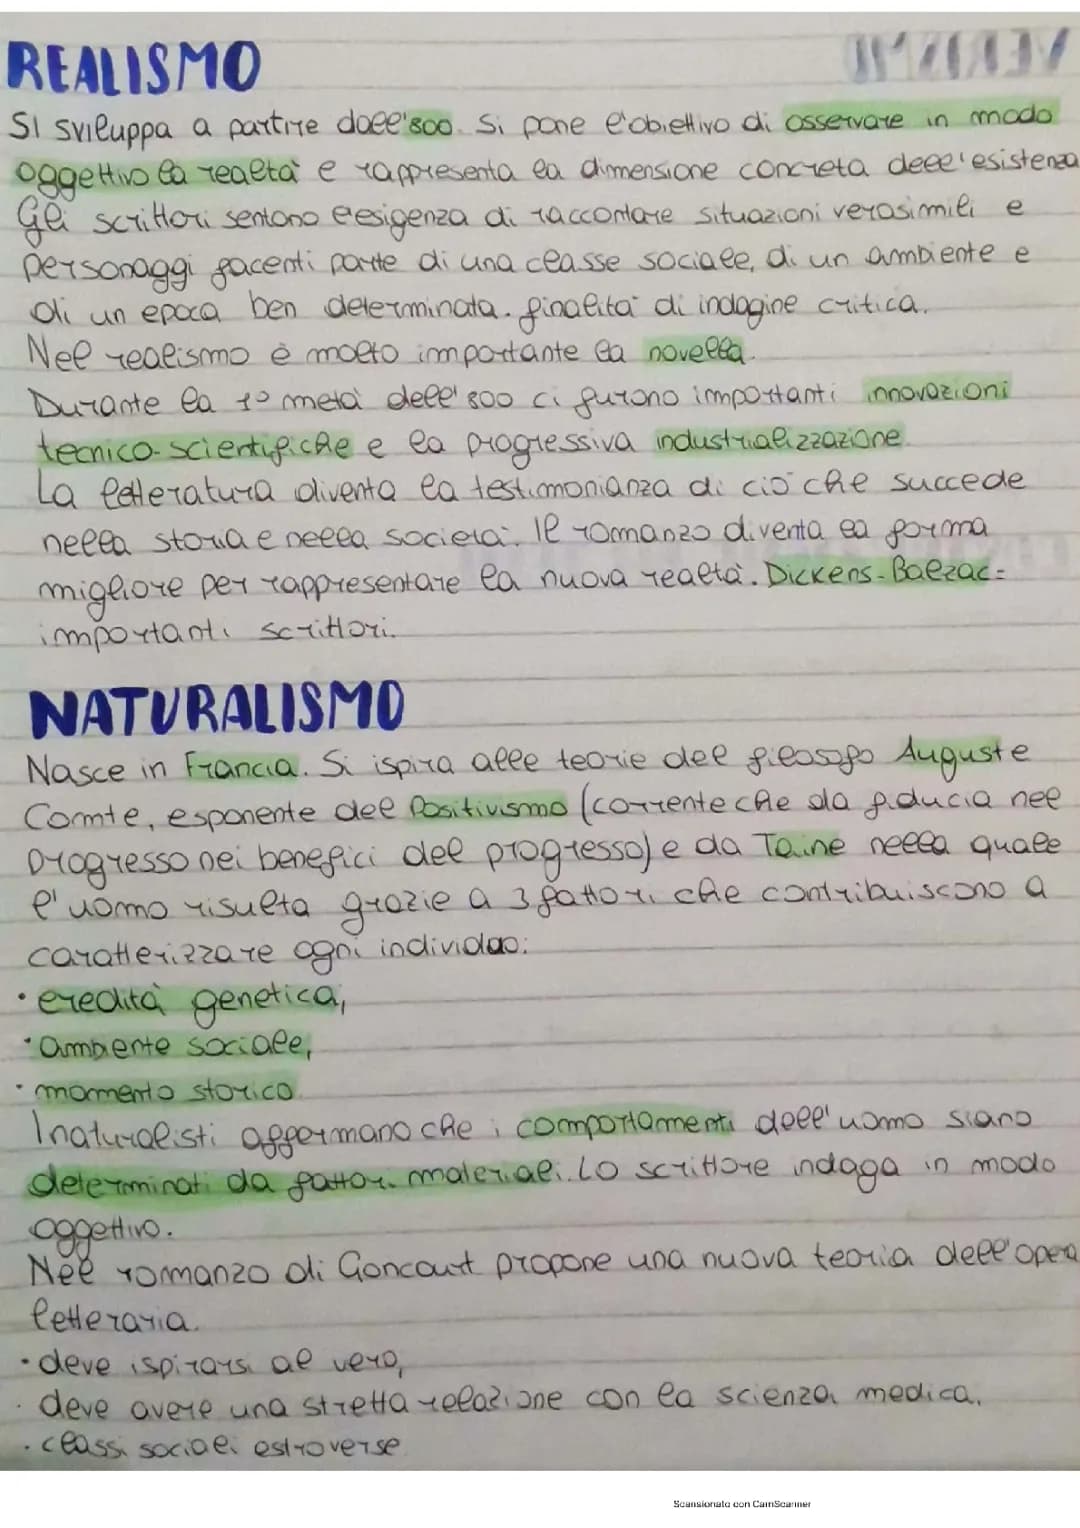 REALISMO
VERISMO
SI sviluppa a partire dall'800. Si pone l'obiettivo di osservare in modo
oggettivo la realtà e rappresenta la dimensione concreta dell'esistenza
Gli scrittori sentono l'esigenza di raccontare situazioni verosimili e
personaggi facenti parte di una classe sociale, di un ambiente e
di un epoca ben determinata. finalità di indagine critica.
Nel realismo è molto importante la novella.
Durante la 1° metà dell'800 ci furono importanti innovazioni
tecnico-scientifiche e la progressiva industrializzazione.
La letteratura diventa la testimonianza di ciò che succede
nella storia e nella società. Il romanzo diventa la forma
migliore per rappresentare la nuova realtà. Dickens-Balzac=
importanti scrittori.
NATURALISMO
Nasce in Francia. Si ispira alle teorie del filosofo Auguste
Comte, esponente del Positivismo (corrente che da fiducia nel
progresso nei benefici del progresso) e da Taine nella quale
l'uomo risulta grazie a 3 fattori che contribuiscono a
caratterizzare ogni individuo:
• eredità genetica,
• ambiente sociale,
• momento storico.
I naturalisti affermano che i comportamenti dell'uomo siano
determinati da fattori materiali. Lo scrittore indaga in modo
oggettivo.
Nel romanzo di Goncourt propone una nuova teoria dell'opera
letteraria.
• deve ispirarsi al vero,
• deve avere una stretta relazione con la scienza medica.
• classi sociali estroverse
Scansionato con CamScanner